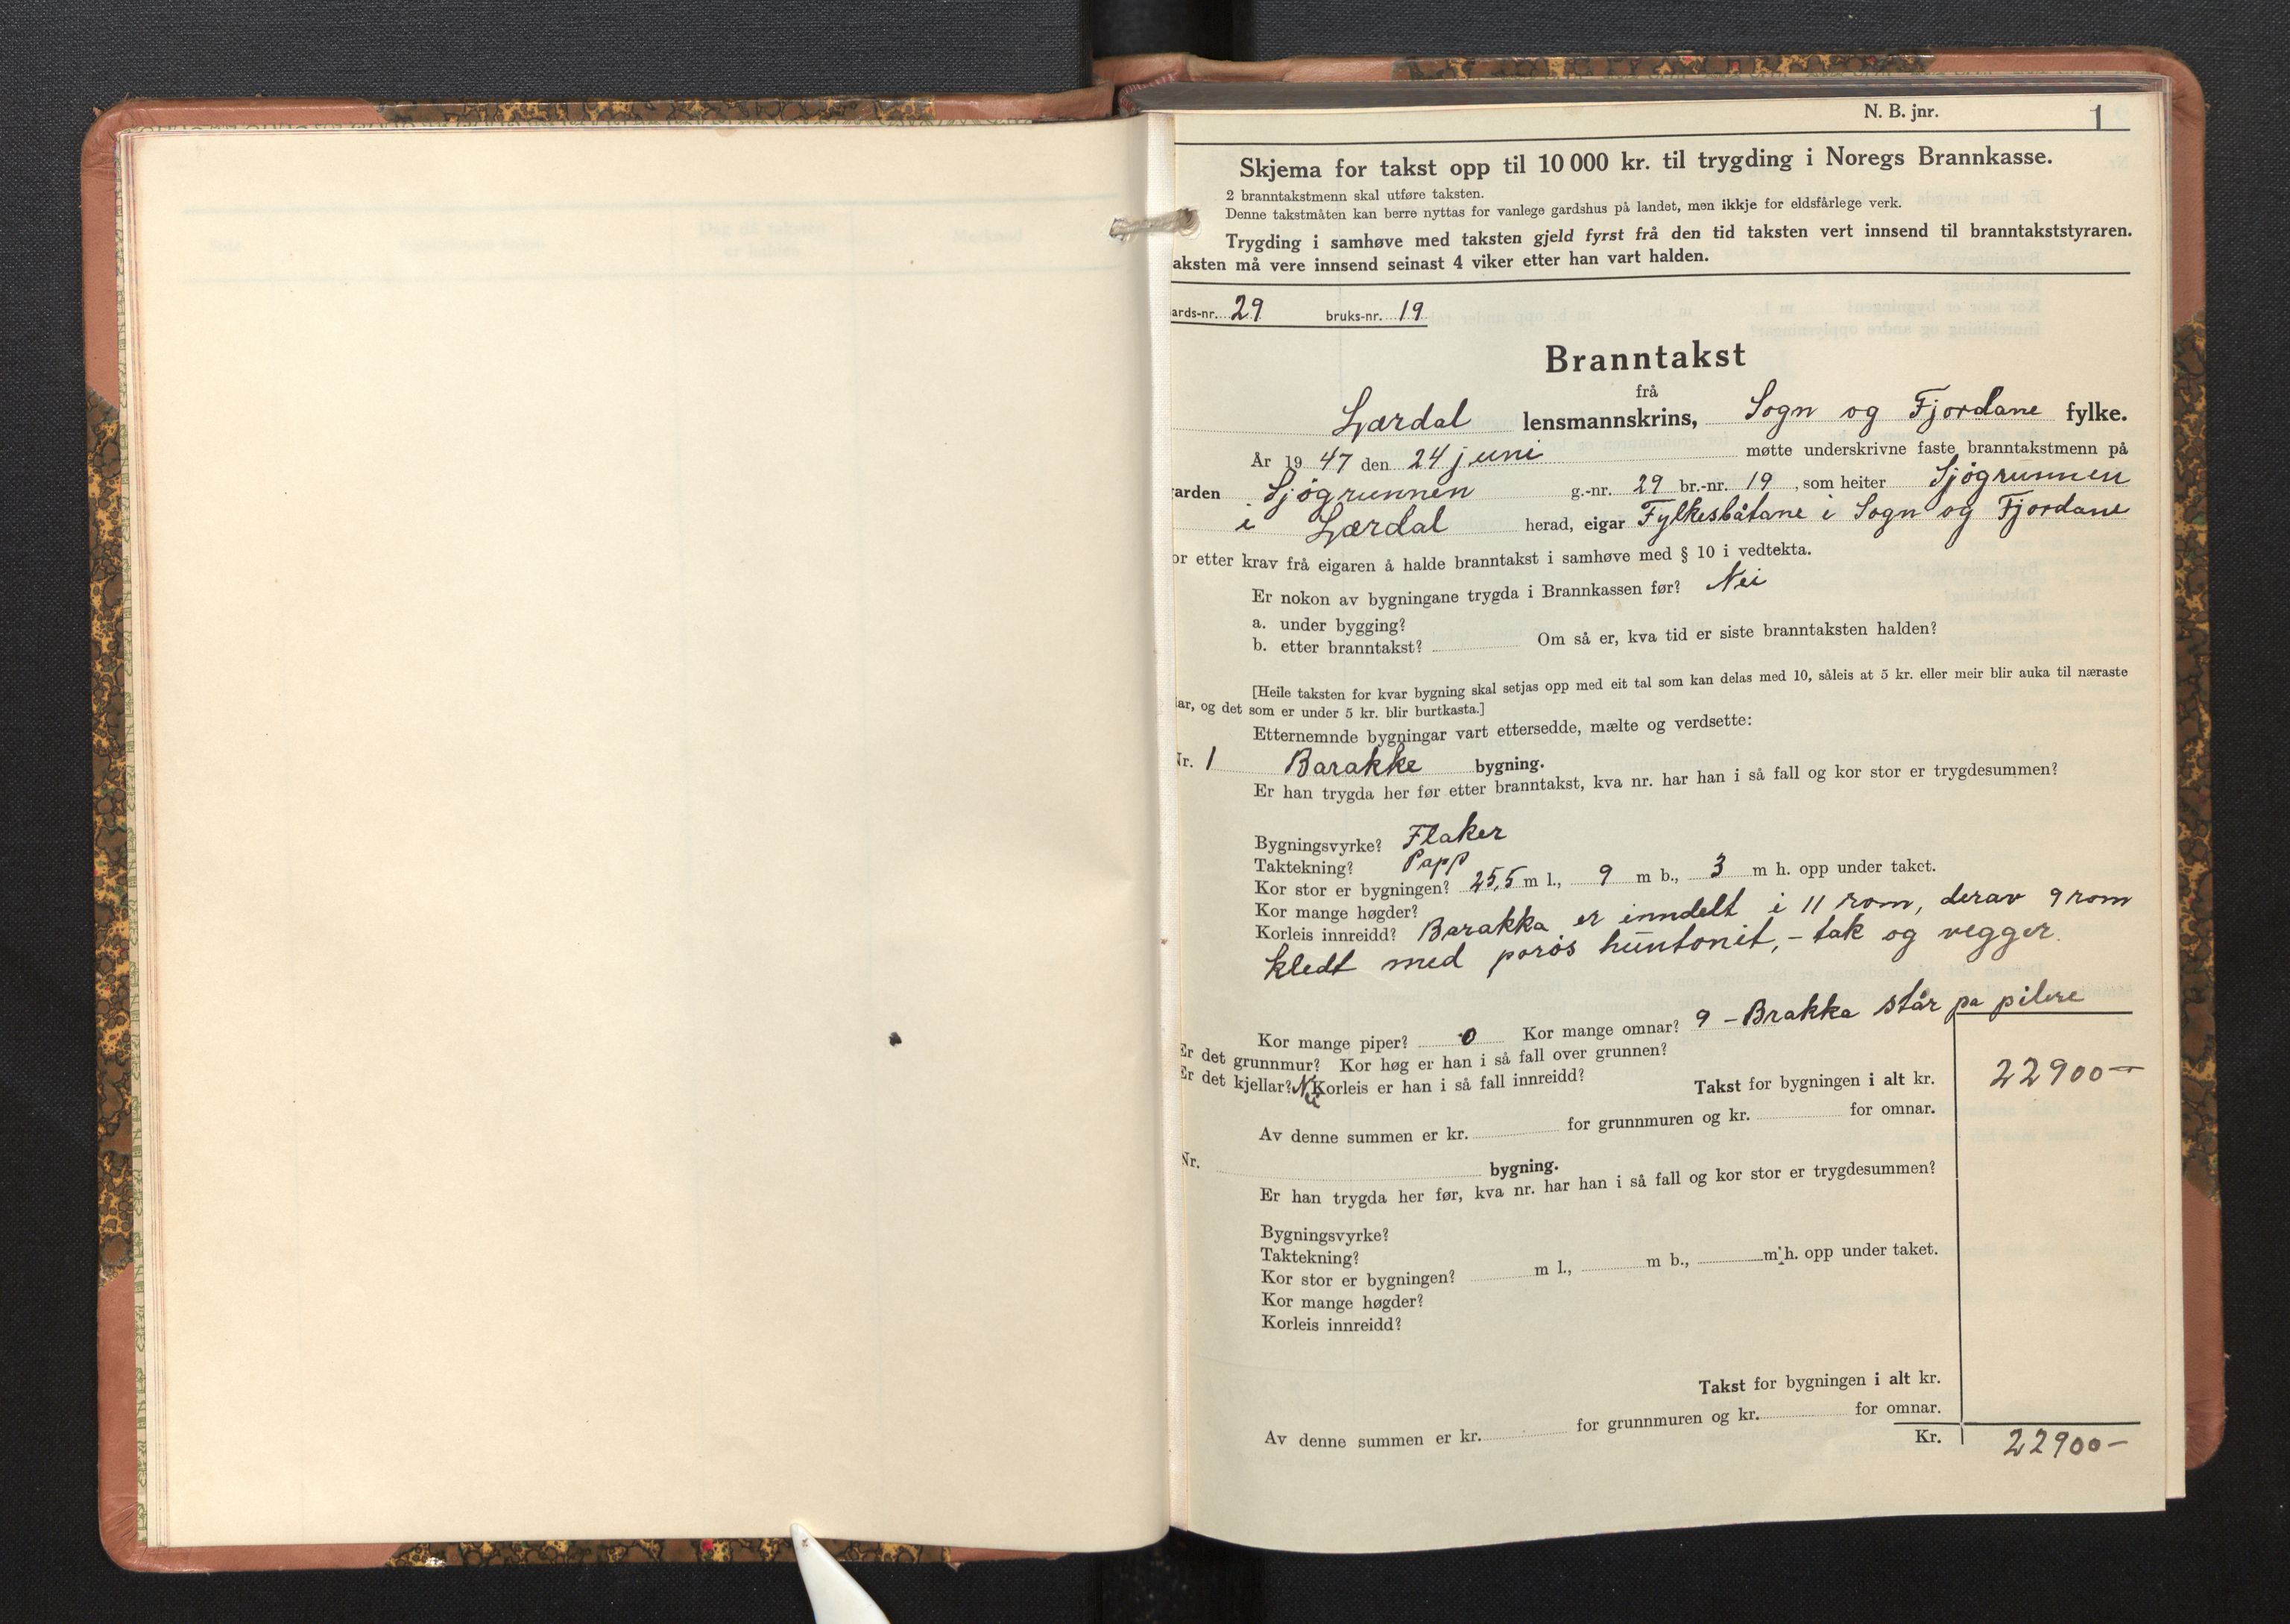 N. B. jnr. 1
Skjema for takst opp til 10 000 kr. til trygding i Noregs Brannkasse.
2 branntakstmenn skal utføre taksten.
Denne takstmåten kan berre nyttas for vanlege gardshus på landet, men ikkje for eldsfårlege verk.
Trygding i samhøve med taksten gjeld fyrst frå den tid taksten vert innsend til branntakststyraren.
aksten må vere innsend seinast 4 viker etter han vart halden.
ards-nr. 29 bruks-nr. 19
Branntakst
frå
Lærdal lensmannskrins, Sogn og Fjordane fylke.
År 19 47 den 24 juni møtte underskrivne faste branntakstmenn på
arden Sjøgrunnen g.-nr. 29 br.-nr. 19, som heiter Sjøgrunnen
i Lærdal herad, eigar Fylkesbåtane i Sogn og Fjordane
or etter krav frå eigaren å halde branntakst i samhøve med § 10 i vedtekta.
Er nokon av bygningane trygda i Brannkassen før? Nei
a. under bygging?
b. etter branntakst? Om så er, kva tid er siste branntaksten halden?
[Heile taksten for kvar bygning skal setjas opp med eit tal som kan delas med 10, såleis at 5 kr. eller meir blir auka til næraste
ar, og det som er under 5 kr. blir burtkasta.]
Etternemnde bygningar vart ettersedde, mælte og verdsette:
Nr. 1 Barakke bygning.
Er han trygda her før etter branntakst, kva nr. har han i så fall og kor stor er trygdesummen?
Bygningsvyrke? Flaker
Taktekning? Papp
Kor stor er bygningen? 25,5 m l., 9 m b., 3 m h. opp under taket.
Kor mange høgder?
Korleis innreidd? Barakka er inndelt i 11 rom, derav 9 rom
kledt med porøs huntonit, - tak og vegger.
Kor mange piper? 0 Kor mange omnar? 9 - Brakka står pa pilere
Er det grunnmur? Kor høg er han i så fall over grunnen?
Er det kjellar? Nei Korleis er han i så fall innreidd?
Takst for bygningen i alt kr. 22900 -
Av denne summen er kr. for grunnmuren og kr. for omnar.
Nr. bygning.
Er han trygda her før, kva nr. har han i så fall og kor stor er trygdesummen?
Bygningsvyrke?
Taktekning?
Kor stor er bygningen? m l., m b., m h. opp under taket.
Kor mange høgder?
Korleis innreidd?
Takst for bygningen i alt kr.
Av denne summen er kr. for grunnmuren og kr. for omnar.
Kr. 22900 -